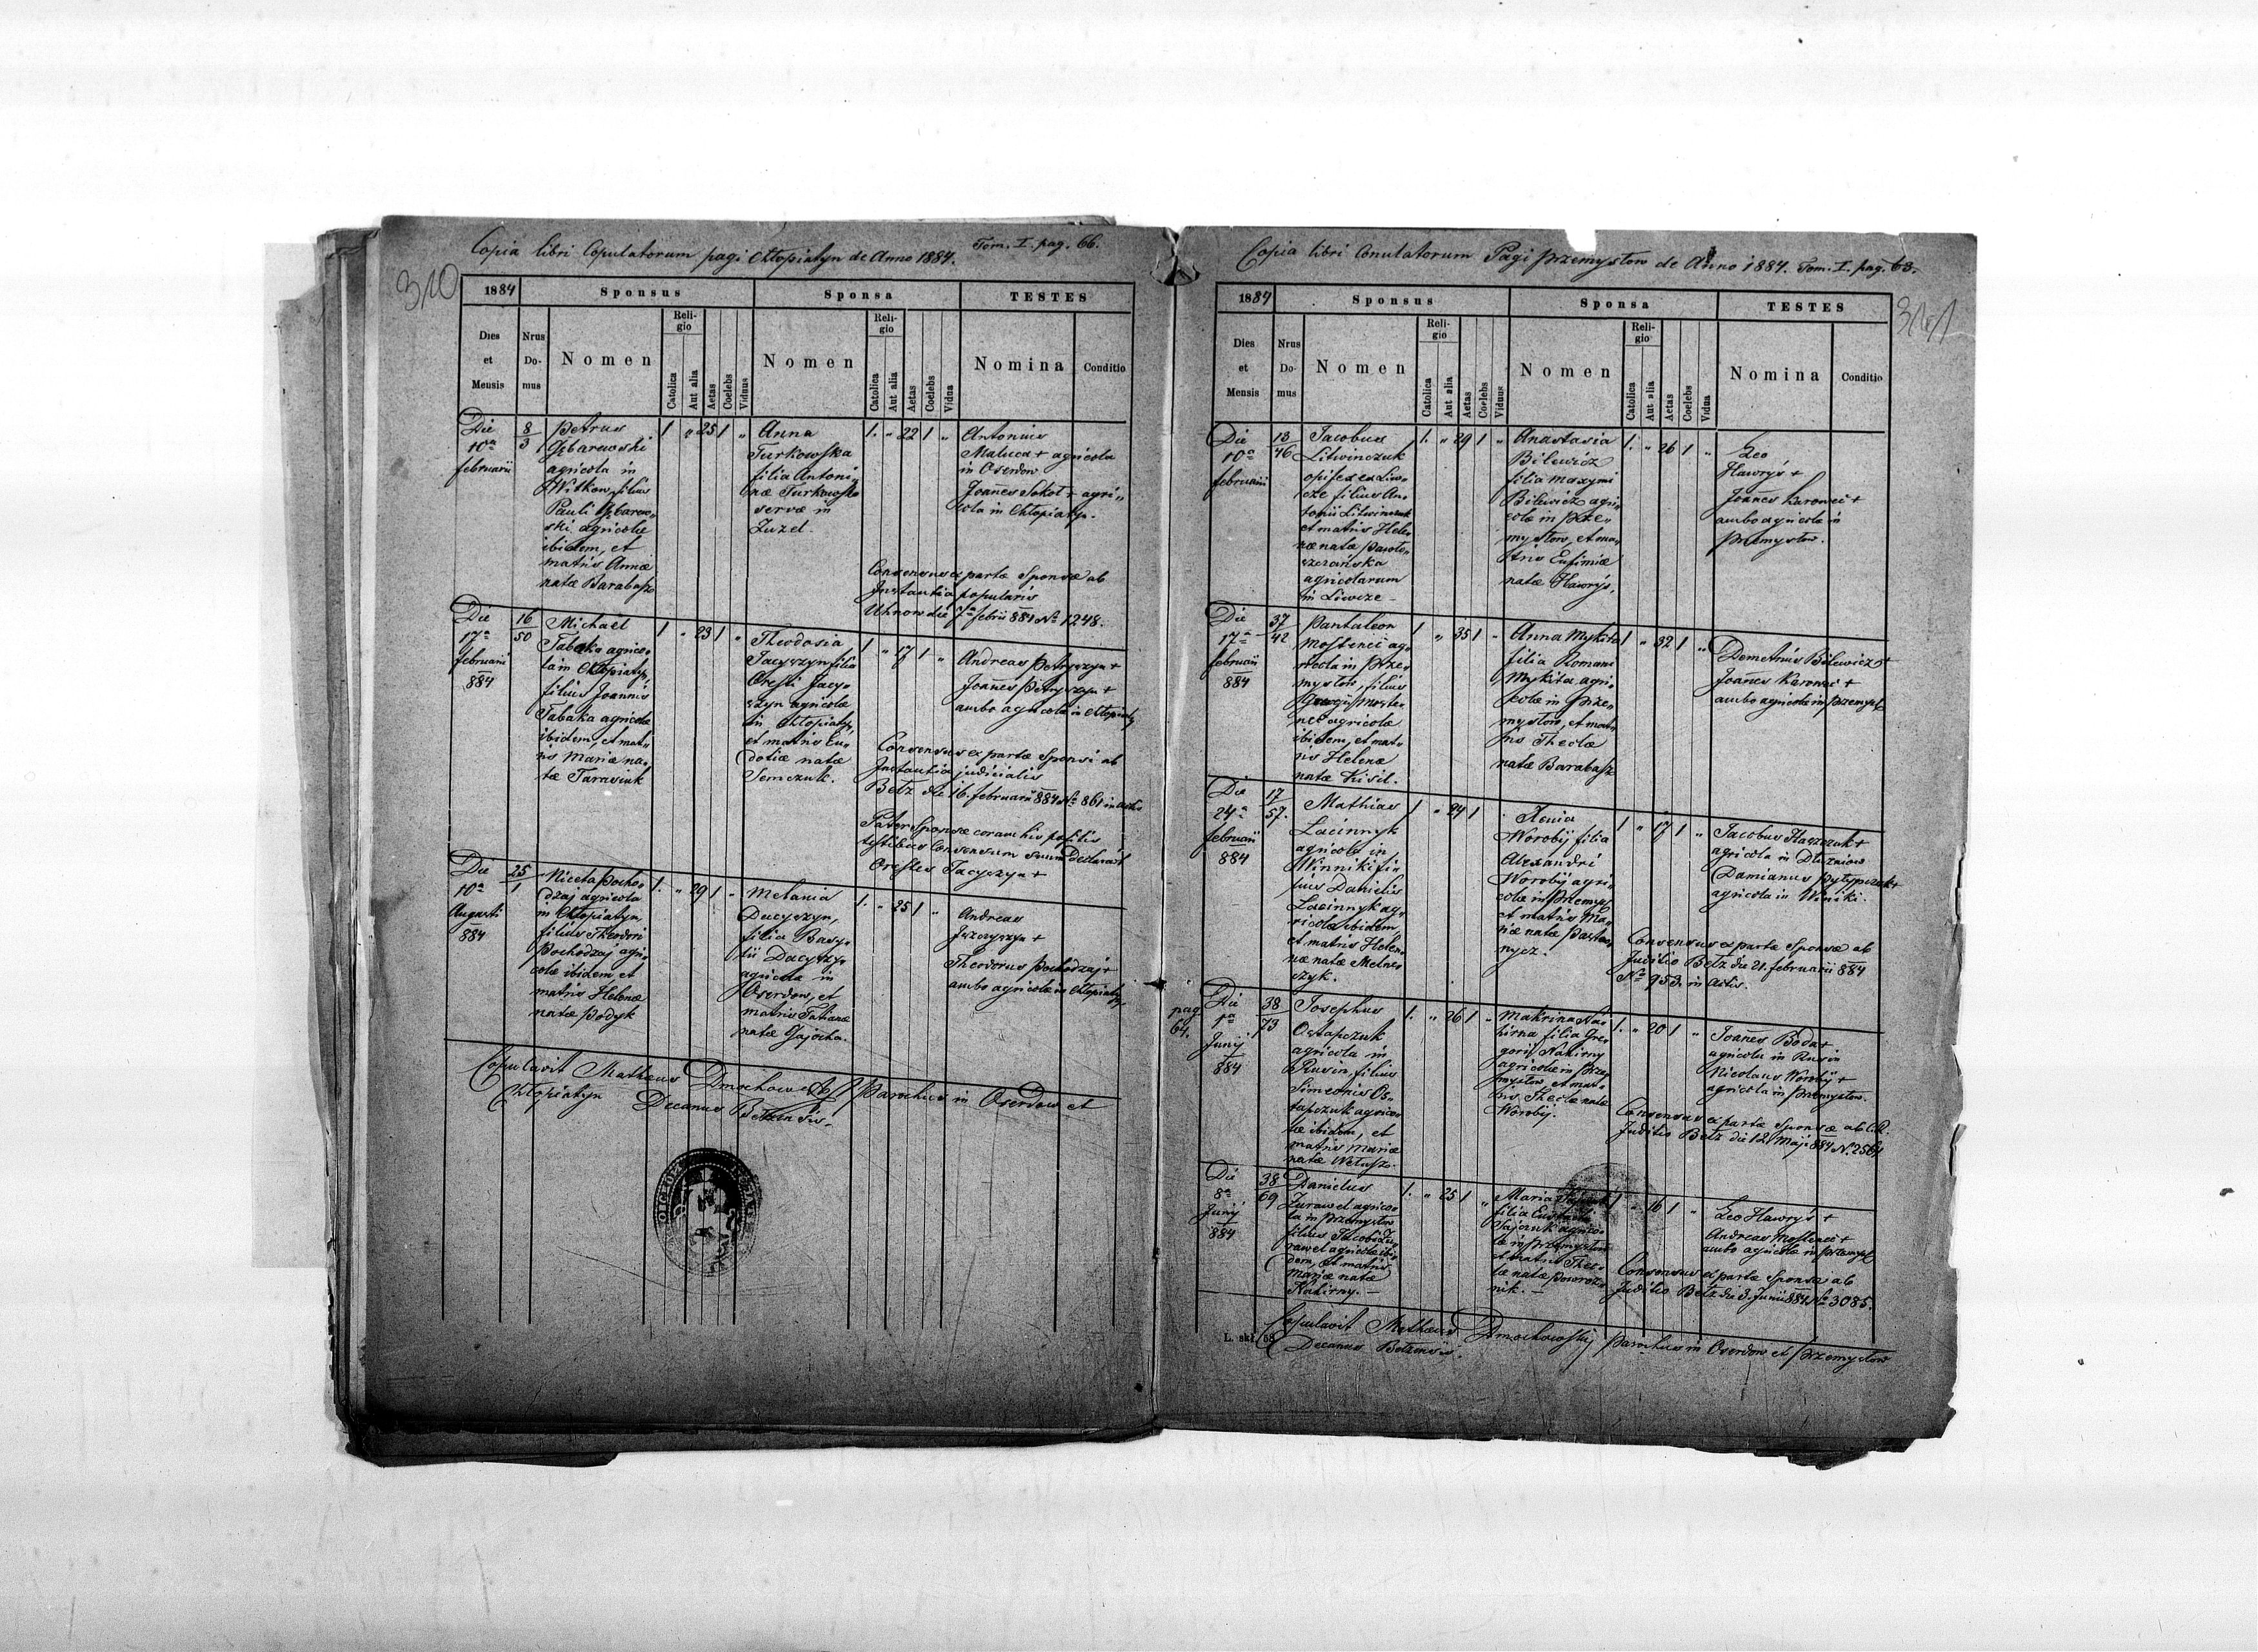 Copia libri Copulatorum pagi Chłopiatyn de Anno 1884. Tom. I. pag. 66.
310
1884 Sponsus Sponsa TESTES
Dies et Mensis
Nrus Domus
Nomen
Religio
Catolica
Aut alia
Aetas
Coelebs
Viduus
Nomen
Religio
Catolica
Aut alia
Aetas
Coelebs
Vidua
Nomina
Conditio
Die
10a
februarii
8
3
Petrus
agricola in
Witkow, filius
Pauli
ski agricolae
ibidem, et
matris Annae
natae Barabasz
1 " 25 1 "
Anna
Turkowska
filia Antoni-
nae Turkowska
servae in
Żużel.
1. " 22 1 "
Antonius
Maluca + agricola
in Oserdow
Joannes Sokol + agri-
cola in Chłopiatyn.
Consensus ex parte Sponsae ab
Instantia popularis
Uhnow die 7a febrii 884 No 1248.
Die
17a
februarii
884
16
50
Michael
Tabaka agrico-
la in Chłopiatyn,
filius Joannis
Tabaka agricolae
ibidem, et mat-
ris Mariae na-
tae Tarasiuk
1 " 23 1 "
Theodosia
Jacyszyn filia
Oresti Jacy-
szyn agricolae
in Chłopiatyn,
et matris Eu-
dotiae natae
Semczuk.
1 " 17 1 "
Andreas Petryszyn +
Joannes Petryszyn +
ambo agricolae in Chłopiatyn
Consensus ex parte Sponsi ab
Instantia judicialis
Bełz die 16. februarii 884 No 861 in actis
Pater Sponsae coram his positis
testibus Consensum suum declaravit
Orestes Jacyszyn +
Die
10a
Augusti
884
25
1
Niceta Pocho-
dzaj agricola
in Chłopiatyn,
filius Theodori
Pochodzaj agri-
colae ibidem et
matris Helenae
natae Podyk
1. " 29 1 "
Melania
Dacyszyn,
filia Basy-
lii Dacyszyn
agricolae in
Oserdow, et
matris Tatianae
natae Gajocha.
1. " 25 1 "
Andreas
Theodorus Pochodzaj +
ambo agricolae in Chłopiatyn
Copulavit Mathaeus Dmochowski Parochus in Oserdow et
Chłopiatyn Decanus Bełzensis.
Copia libri Copulatorum Pagi Przemysłow de Anno 1884. Tom. I. pag. 63.
1884 Sponsus Sponsa TESTES
Dies et Mensis
Nrus Domus
Nomen
Religio
Catolica
Aut alia
Aetas
Coelebs
Viduus
Nomen
Religio
Catolica
Aut alia
Aetas
Coelebs
Vidua
Nomina
Conditio
Die
10a
februarii
13
46
Jacobus
Litwinczuk
opifex ex Liw-
cze filius An-
tonii Litwinczuk
et matris Hele-
nae natae
agricolarum
in Liwcze
1. " 29 1 "
Anastasia
Bilewicz
filia Maxymi
Bilewicz agri-
colae in Prze-
mysłow, et ma-
tris Eufimiae
natae Hawryś.
1. " 26 1 "
Leo
Hawryś +
Joannes Karowec +
ambo agricolae in
Przemysłow.
Die
17a
februarii
884
37
42
Pantaleon
Mostenec ag-
ricola in Prze-
mysłow, filius
Georgii Moste-
nec agricolae
ibidem, et mat-
ris Helenae
natae Kisil.
1 " 35 1 "
Anna Mykita
filia Romani
Mykita agri-
colae in Prze-
mysłow, et mat-
ris Theclae
natae Barabasz
1 " 32 1 "
Demetrius Bilewicz +
Joannes Karowec +
ambo agricolae in Przemysł.
Die
24a
februarii
884
17
57.
Mathias
Lacinnyk
agricola in
Winniki fi-
lius Danielis
Lacinnyk ag-
ricolae ibidem
et matris Hele-
nae natae Melne-
czyk.
1 " 24 1
Xenia
Worobij filia
Alexandri
Worobij agri-
colae in Przemysł
et matris Ma-
riae natae
1 " 17 1 "
Jacobus Haszczuk +
agricola in Dłużniow
Damianus Pyłypczuk +
agricola in Winiki.
Consensus ex parte Sponsae ab
Juditio Bełz die 21. februarii 884
No 953. in actis.
pag.
64.
Die
1a
Junij
884
38
73
Josephus
Ostapczuk
agricola in
Rusin, filius
Simeonis Os-
tapczuk agrico-
lae ibidem, et
matris Mariae
natae
1. " 26 1 "
Makrina Na-
hirna filia Gre-
gorij Nahirny
agricolae in Prze-
mysłow et mat-
ris Theclae natae
Worobij.
1. " 20 1 "
Joannes Boda +
agricola in Rusin
Nicolaus Worobij +
agricola in Przemysłow.
Consensus ex parte Sponsae ab C.R.
Juditio Bełz die 12 Maji 884 N. 2564
Die
8a
Junij
884
38
69
Danielus
Zurawel agrico-
la in Przemysłow
filius Jacobi Zu-
rawel agricolae ibi-
dem, et matris
Mariae natae
Nahirny.
1. " 25 1 "
Maria
filia
Sajczuk agrico-
lae in Przemysłow
et matris Thec-
lae natae Powroz-
nik.
1 " 16 1 "
Leo Hawryś +
Andreas Mostenec +
ambo agricolae in Przemysł
Consensus ex parte Sponsae ab
Juditio Bełz die 3. Junii 884 No 3085.
L. skł. 58
Copulavit Mathaeus Dmochowskij Parochus in Oserdow et Przemysłow
Decanus Bełzensis.